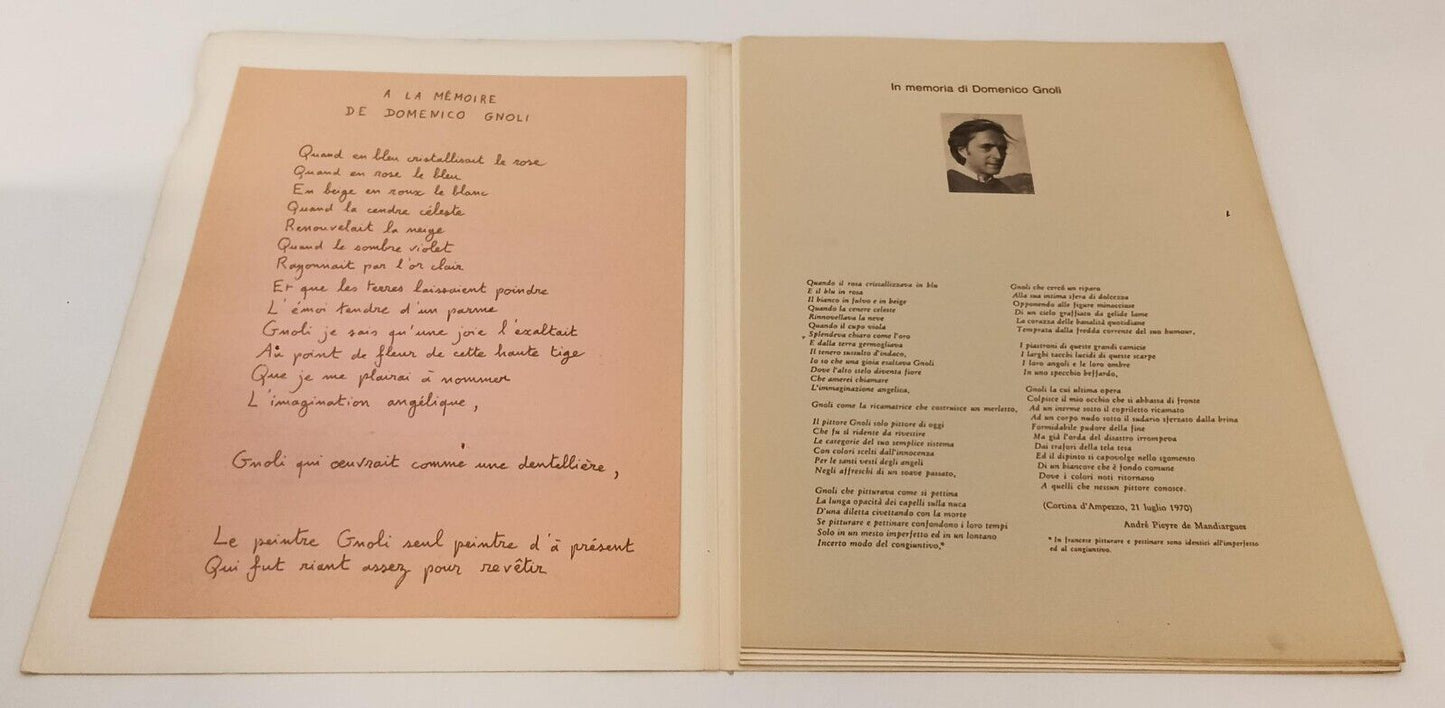 A LA MÉMOIRE
DE DOMENICO GNOLI
Quand en bleu cristallisait le rose
Quand en rose le bleu
En beige en roux le blanc
Quand la cendre céleste
Renouvelait la neige
Quand le sombre violet
Rayonnait par l'or clair
Et que les terres laissaient poindre
L'émoi tendre d'un parme
Gnoli je sais qu'une joie l'exaltait
Au point de fleur de cette haute tige
Que je me plairai à nommer
L'imagination angélique,
Gnoli qui œuvrait comme une dentellière,
Le peintre Gnoli seul peintre d'à présent
Qui fut riant assez pour revêtir
In memoria di Domenico Gnoli
Quando il rosa cristallizzava in blu
E il blu in rosa
Il bianco in fulvo e in beige
Quando la cenere celeste
Rinnovellava la neve
Quando il cupo viola
Splendeva chiaro come l'oro
E dalla terra germogliava
Il tenero sussulto d'indaco,
Io so che una gioia esaltava Gnoli
Dove l'alto stelo diventa fiore
Che amerei chiamare
L'immaginazione angelica,
Gnoli come la ricamatrice che costruisce un merletto,
Il pittore Gnoli solo pittore di oggi
Che fu sì ridente da rivestire
Le categorie del suo semplice sistema
Con colori scelti dall'innocenza
Per le santi vesti degli angeli
Negli affreschi di un soave passato,
Gnoli che pitturava come si pettina
La lunga opacità dei capelli sulla nuca
D'una diletta civettando con la morte
Se pitturare e pettinare confondono i loro tempi
Solo in un mesto imperfetto ed in un lontano
Incerto modo del congiuntivo,*
Gnoli che cercò un riparo
Alla sua intima sfera di dolcezza
Opponendo alle figure minacciose
Di un cielo graffiato da gelide lame
La corazza delle banalità quotidiane
Temprata dalla fredda corrente del suo humour,
I piastroni di queste grandi camicie
I larghi tacchi lucidi di queste scarpe
I loro angoli e le loro ombre
In uno specchio beffardo,
Gnoli la cui ultima opera
Colpisce il mio occhio che si abbassa di fronte
Ad un inerme sotto il copriletto ricamato
Ad un corpo nudo sotto il sudario sferzato dalla brina
Formidabile pudore della fine
Ma già l'orda del disastro irrompeva
Dai trafori della tela tesa
Ed il dipinto si capovolge nello sgomento
Di un biancore che è fondo comune
Dove i colori noti ritornano
A quelli che nessun pittore conosce.
(Cortina d'Ampezzo, 21 luglio 1970)
Andrè Pieyre de Mandiargues
* In francese pitturare e pettinare sono identici all'imperfetto
ed al congiuntivo.